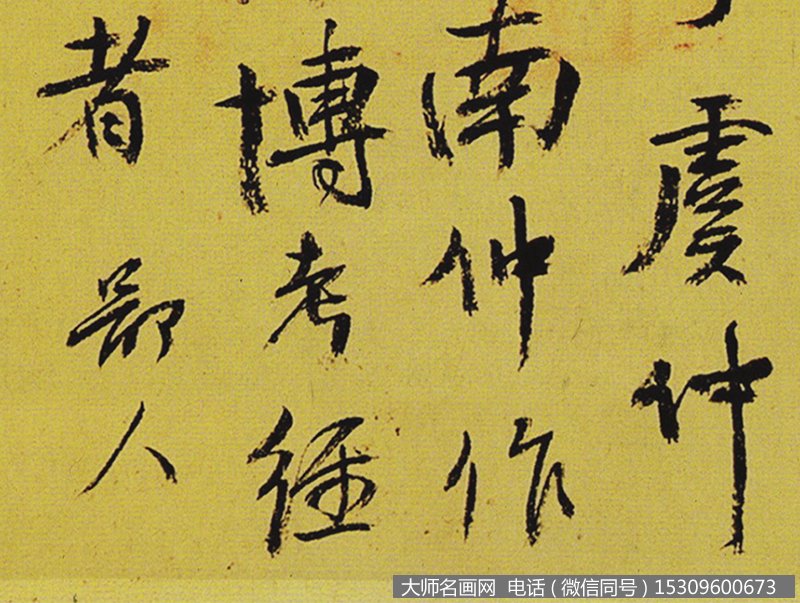 虞仲
南仲作
博考經
者鄙人
大师名画网 电话(微信同号)15309600673